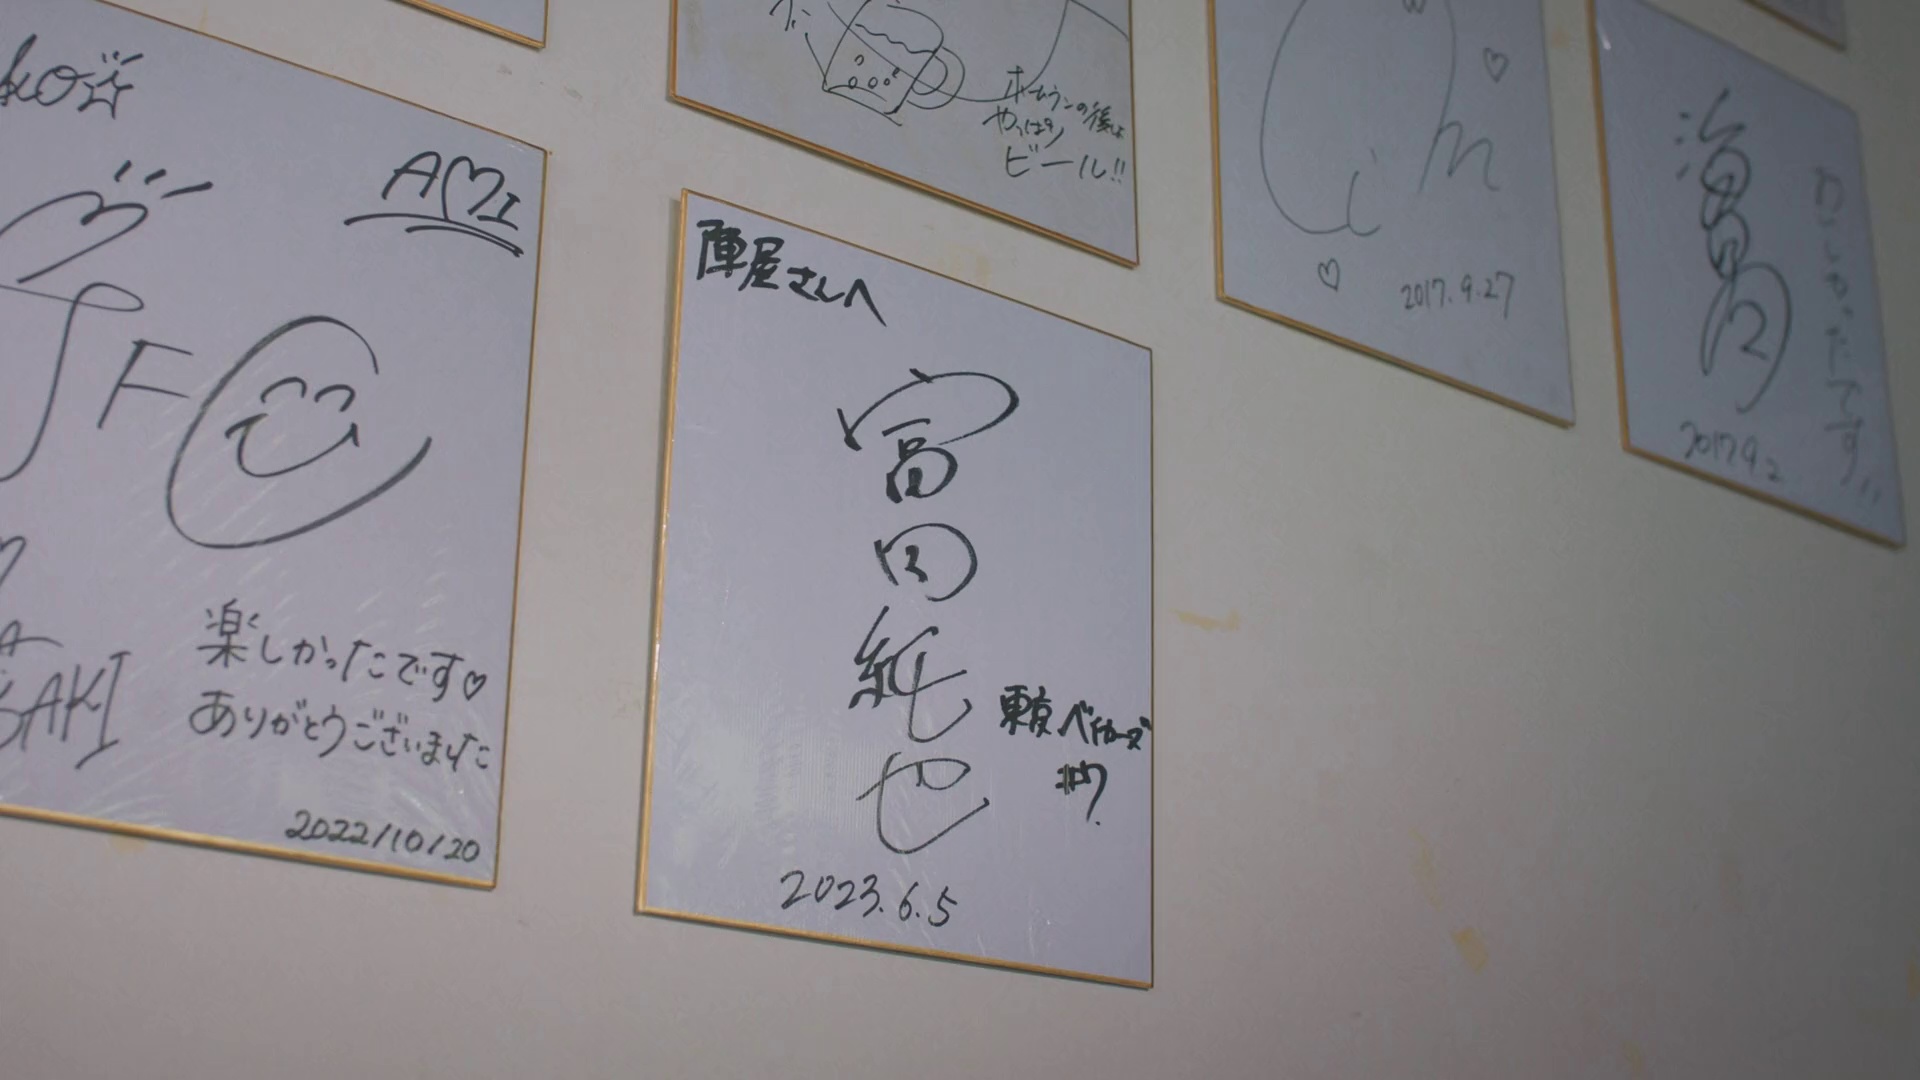 ko☆
AMI
F
SAKI
楽しかったです♡
ありがとうございました
2022/10/20
ホームランの後は
やっぱり
ビール!!
陣屋さんへ
冨田純也
東京ベイカーズ
#7
2023.6.5
2017.9.27
2017 9.2